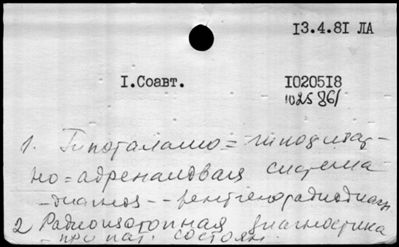 13.4.81 ЛА
1.Соавт. 1020518
1025861
1. Гипоталамо=гипофизар-
но=адреналовая система
-диагноз--рентгенорадиодиагн
2 Радиоизотопная диагностика
- при пат. состоян.